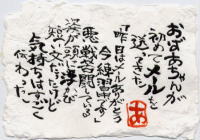 おばあちゃんが
初めてメールを
送ってきた。
「昨日はメールありがとう
今練習中です」
悪戦苦闘している
姿が頭に浮かび
短い文だったけど
気持ちはすごく
伝わった。